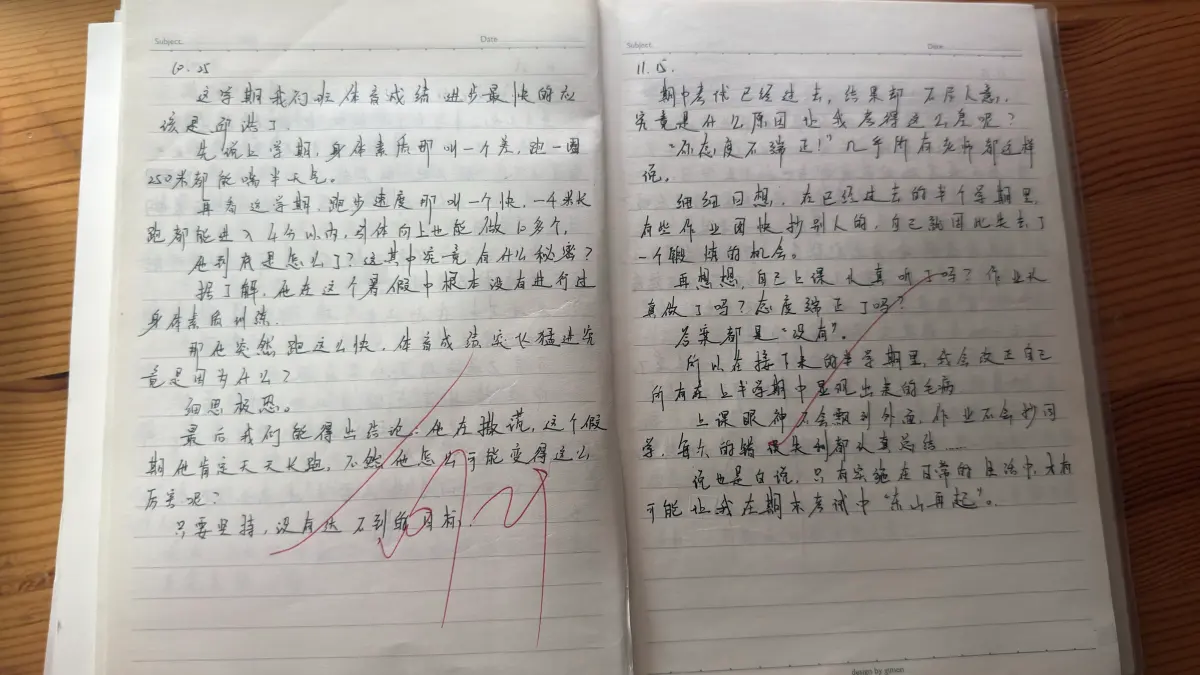 Subject.
Date
10.25
这学期我们班体育成绩进步最快的应
该是邱浩了.
先说上学期,身体素质那叫一个差,跑一圈
250米都能喘半天气。
再看这学期,跑步速度那叫一个快.一千米长
跑都能进入4分以内,引体向上也能做10多个,
他到底是怎么了?这其中究竟有什么秘密?
据了解,他在这个暑假中根本没有进行过
身体素质训练.
那他突然跑这么快,体育成绩突飞猛进究
竟是因为什么?
细思极恐。
最后我们能得出结论:他在撒谎,这个假
期他肯定天天长跑,不然他怎么可能变得这么
厉害呢?
只要坚持,没有达不到的目标.
Subject.
Date
11.15.
期中考试已经过去,结果却不尽人意,
究竟是什么原因让我考得这么差呢?
"你态度不端正!"几乎所有老师都这样
说,
细细回想,在已经过去的半个学期里,
有些作业图快抄别人的,自己就因此失去了
一个锻炼的机会。
再想想,自己上课认真听了吗?作业认
真做了吗?态度端正了吗?
答案都是"没有"。
所以在接下来的半学期里,我会改正自己
所有在上半学期中显现出来的毛病
上课眼神不会飘到外面,作业不会抄同
学,每次的错误失利都认真总结……
说也是白说,只有实施在日常的生活中,才有
可能让我在期末考试中"东山再起"。
design by gimon